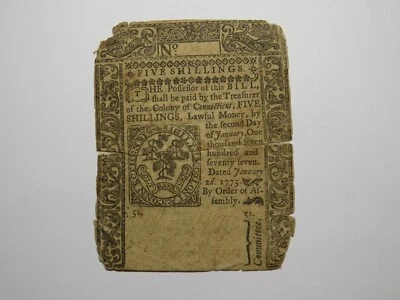 No
FIVE SHILLINGS.
THE Possessor of this BILL,
shall be paid by the Treasurer
of the Colony of Connecticut, FIVE
SHILLINGS, Lawful Money, by
the second Day
of January, One
thousand seven
hundred and
seventy seven.
Dated January
2d. 1775.
By Order of As-
sembly.
5s. 5s.
Committee.